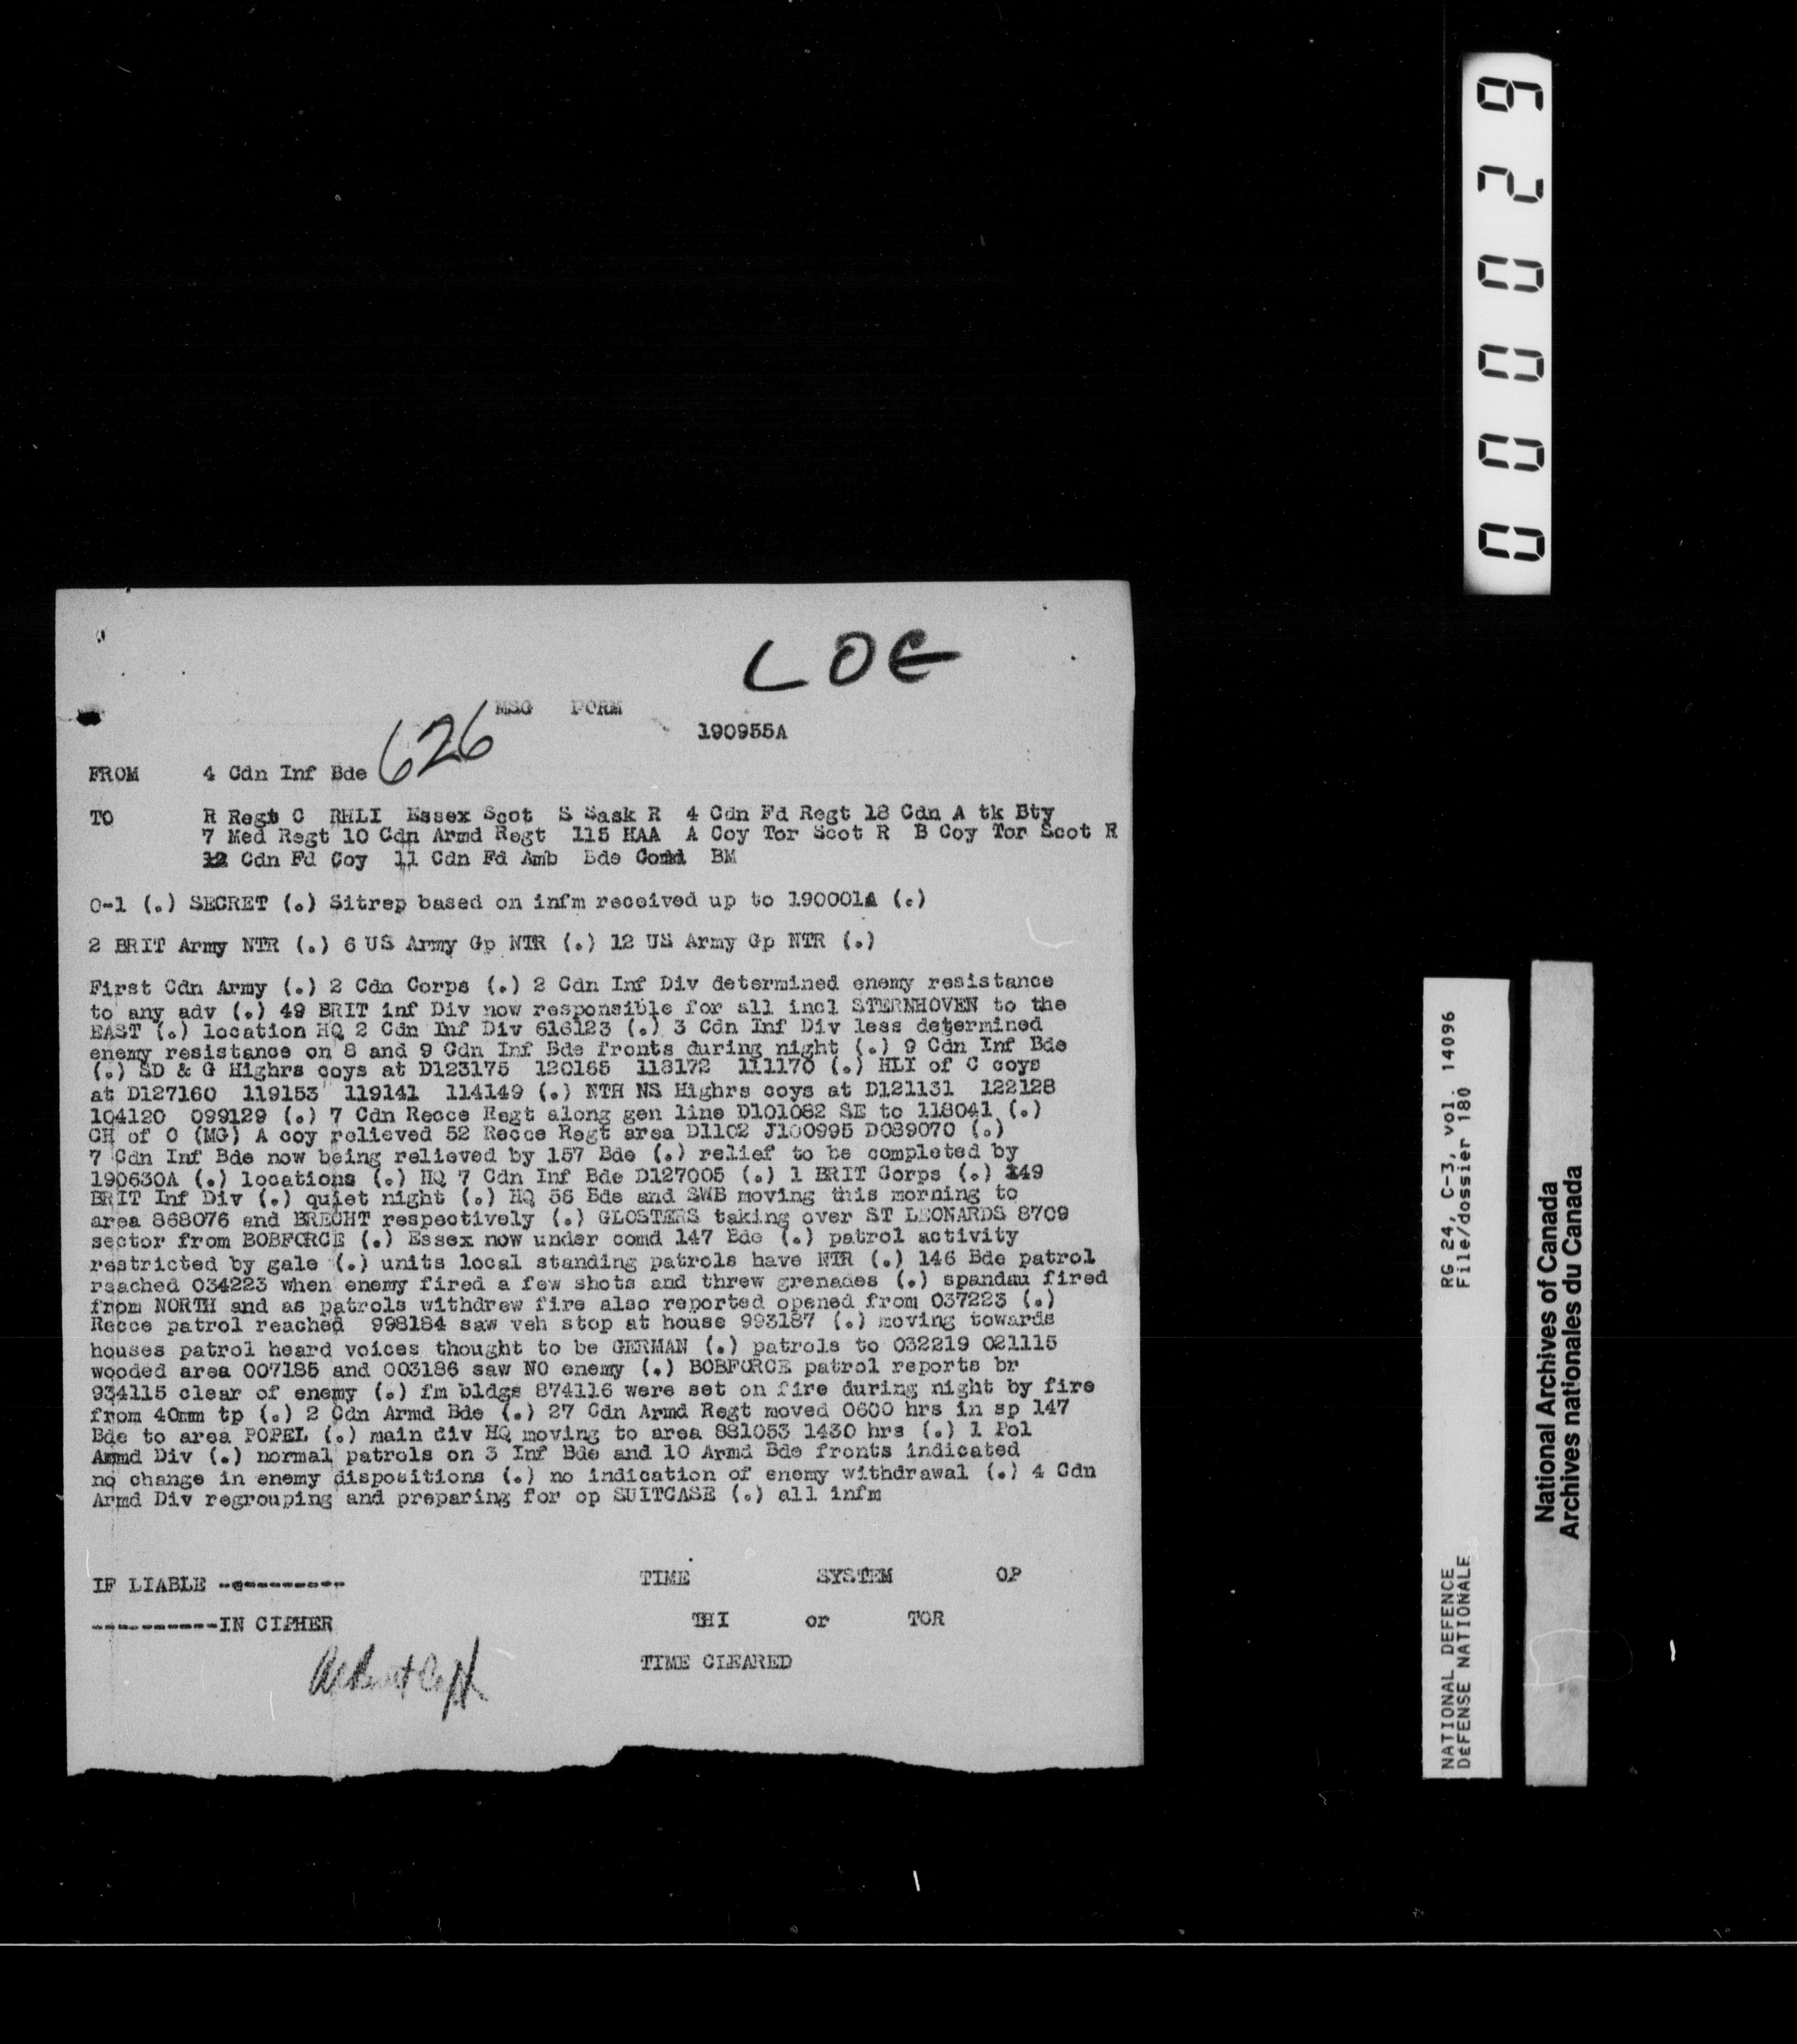 000029
LOE
MSG FORM
626
190955A
FROM 4 Cdn Inf Bde
TO R Regt C RHLI Essex Scot S Sask R 4 Cdn Fd Regt 18 Cdn A tk Bty
7 Med Regt 10 Cdn Armd Regt 115 HAA A Coy Tor Scot R B Coy Tor Scot R
12 Cdn Fd Coy 11 Cdn Fd Amb Bde Comd BM
O-1 (.) SECRET (.) Sitrep based on infm received up to 190001A (.)
2 BRIT Army NTR (.) 6 US Army Gp NTR (.) 12 US Army Gp NTR (.)
First Cdn Army (.) 2 Cdn Corps (.) 2 Cdn Inf Div determined enemy resistance
to any adv (.) 49 BRIT inf Div now responsible for all incl STERNHOVEN to the
EAST (.) location HQ 2 Cdn Inf Div 616123 (.) 3 Cdn Inf Div less determined
enemy resistance on 8 and 9 Cdn Inf Bde fronts during night (.) 9 Cdn Inf Bde
(.) SD & G Highrs coys at D123175 120165 118172 111170 (.) HLI of C coys
at D127160 119153 119141 114149 (.) NTH NS Highrs coys at D121131 122128
104120 099129 (.) 7 Cdn Recce Regt along gen line D101082 SE to 118041 (.)
CH of O (MG) A coy relieved 52 Recce Regt area D1102 J100995 D089070 (.)
7 Cdn Inf Bde now being relieved by 157 Bde (.) relief to be completed by
190630A (.) locations (.) HQ 7 Cdn Inf Bde D127005 (.) 1 BRIT Corps (.) 149
BRIT Inf Div (.) quiet night (.) HQ 56 Bde and SWB moving this morning to
area 868076 and BRECHT respectively (.) GLOSTERS taking over ST LEONARDS 8709
sector from BOBFORCE (.) Essex now under comd 147 Bde (.) patrol activity
restricted by gale (.) units local standing patrols have NTR (.) 146 Bde patrol
reached 034223 when enemy fired a few shots and threw grenades (.) spandau fired
from NORTH and as patrols withdrew fire also reported opened from 037223 (.)
Recce patrol reached 998184 saw veh stop at house 993187 (.) moving towards
houses patrol heard voices thought to be GERMAN (.) patrols to 032219 021115
wooded area 007185 and 003186 saw NO enemy (.) BOBFORCE patrol reports br
934115 clear of enemy (.) fm bldgs 874116 were set on fire during night by fire
from 40mm tp (.) 2 Cdn Armd Bde (.) 27 Cdn Armd Regt moved 0600 hrs in sp 147
Bde to area POPEL (.) main div HQ moving to area 881053 1430 hrs (.) 1 Pol
Armd Div (.) normal patrols on 3 Inf Bde and 10 Armd Bde fronts indicated
no change in enemy dispositions (.) no indication of enemy withdrawal (.) 4 Cdn
Armd Div regrouping and preparing for op SUITCASE (.) all infm
IF LIABLE ---------- TIME SYSTEM OP
----------IN CIPHER THI or TOR
TIME CLEARED
NATIONAL DEFENCE RG 24, C-3, vol. 14096
DÉFENSE NATIONALE File/dossier 180
National Archives of Canada
Archives nationales du Canada